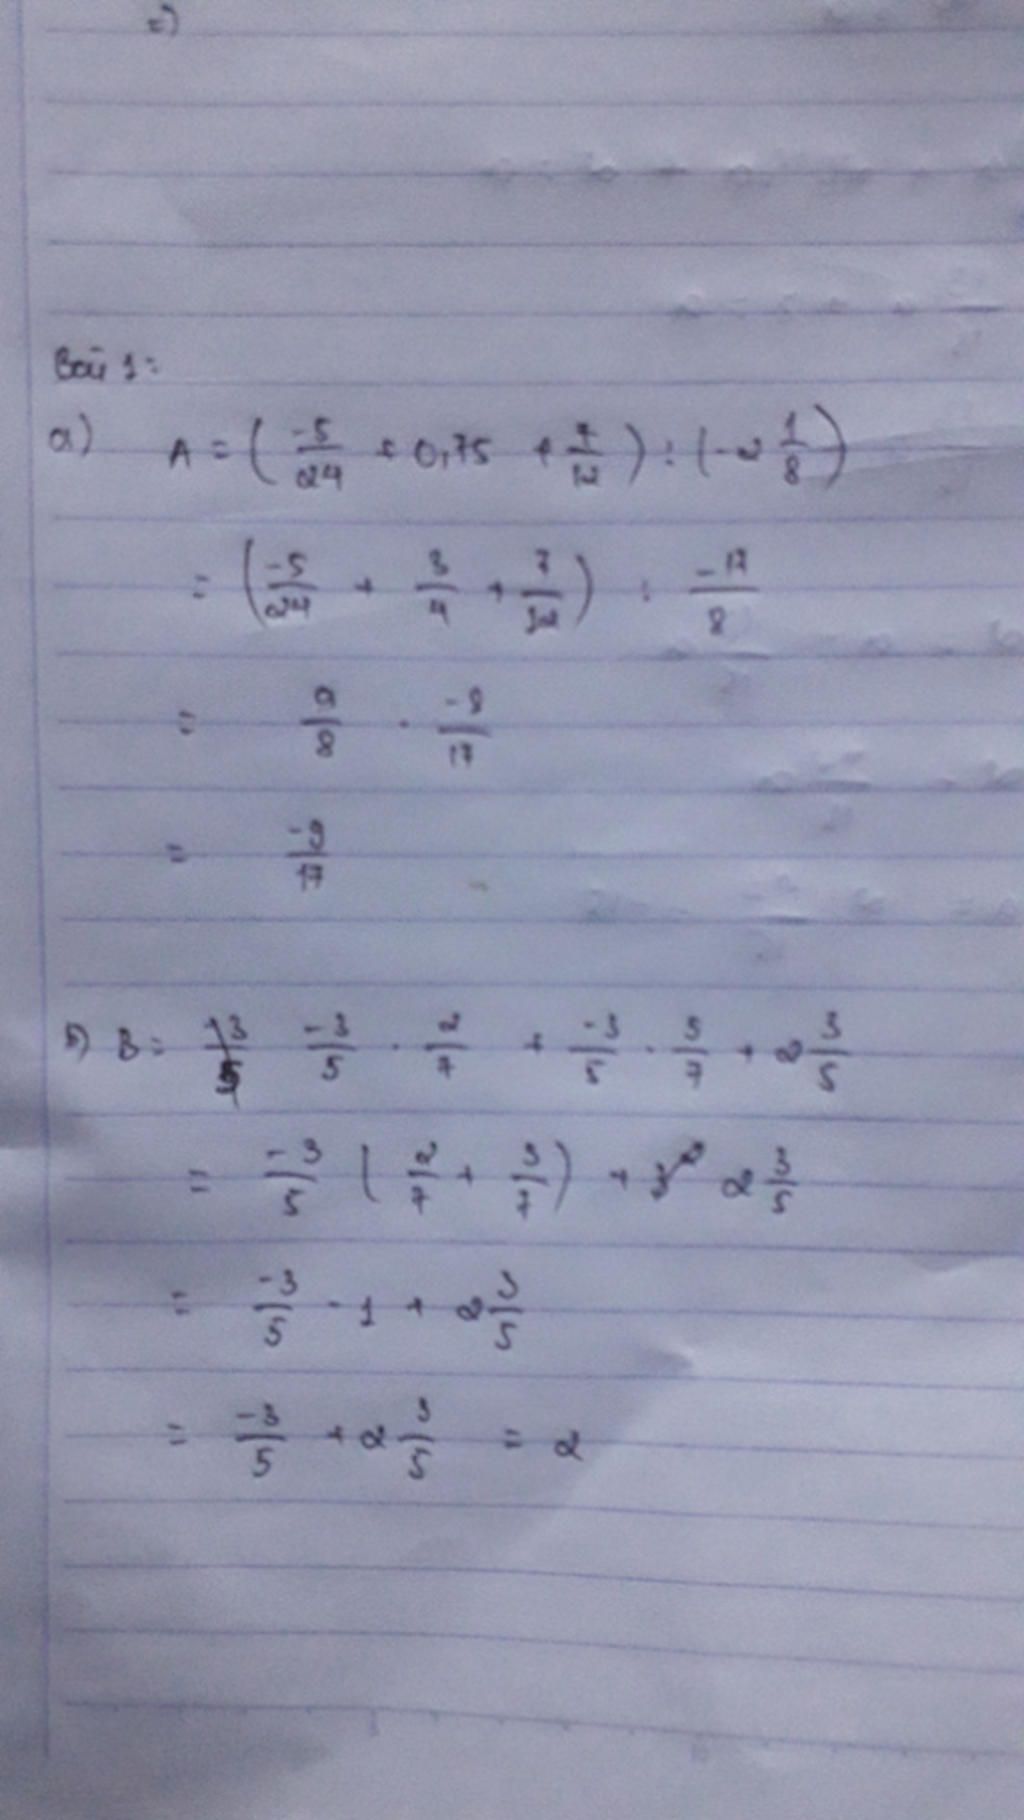 c)
Bài 1:
a) A = ( -5/24 + 0,75 + 7/12 ) : ( -2 1/8 )
= ( -5/24 + 3/4 + 7/12 ) : -17/8
= 9/8 . -8/17
= -9/17
b) B = -3/5 . 2/7 + -3/5 . 5/7 + 2 3/5
= -3/5 ( 2/7 + 5/7 ) + 2 3/5
= -3/5 . 1 + 2 3/5
= -3/5 + 2 3/5 = 2